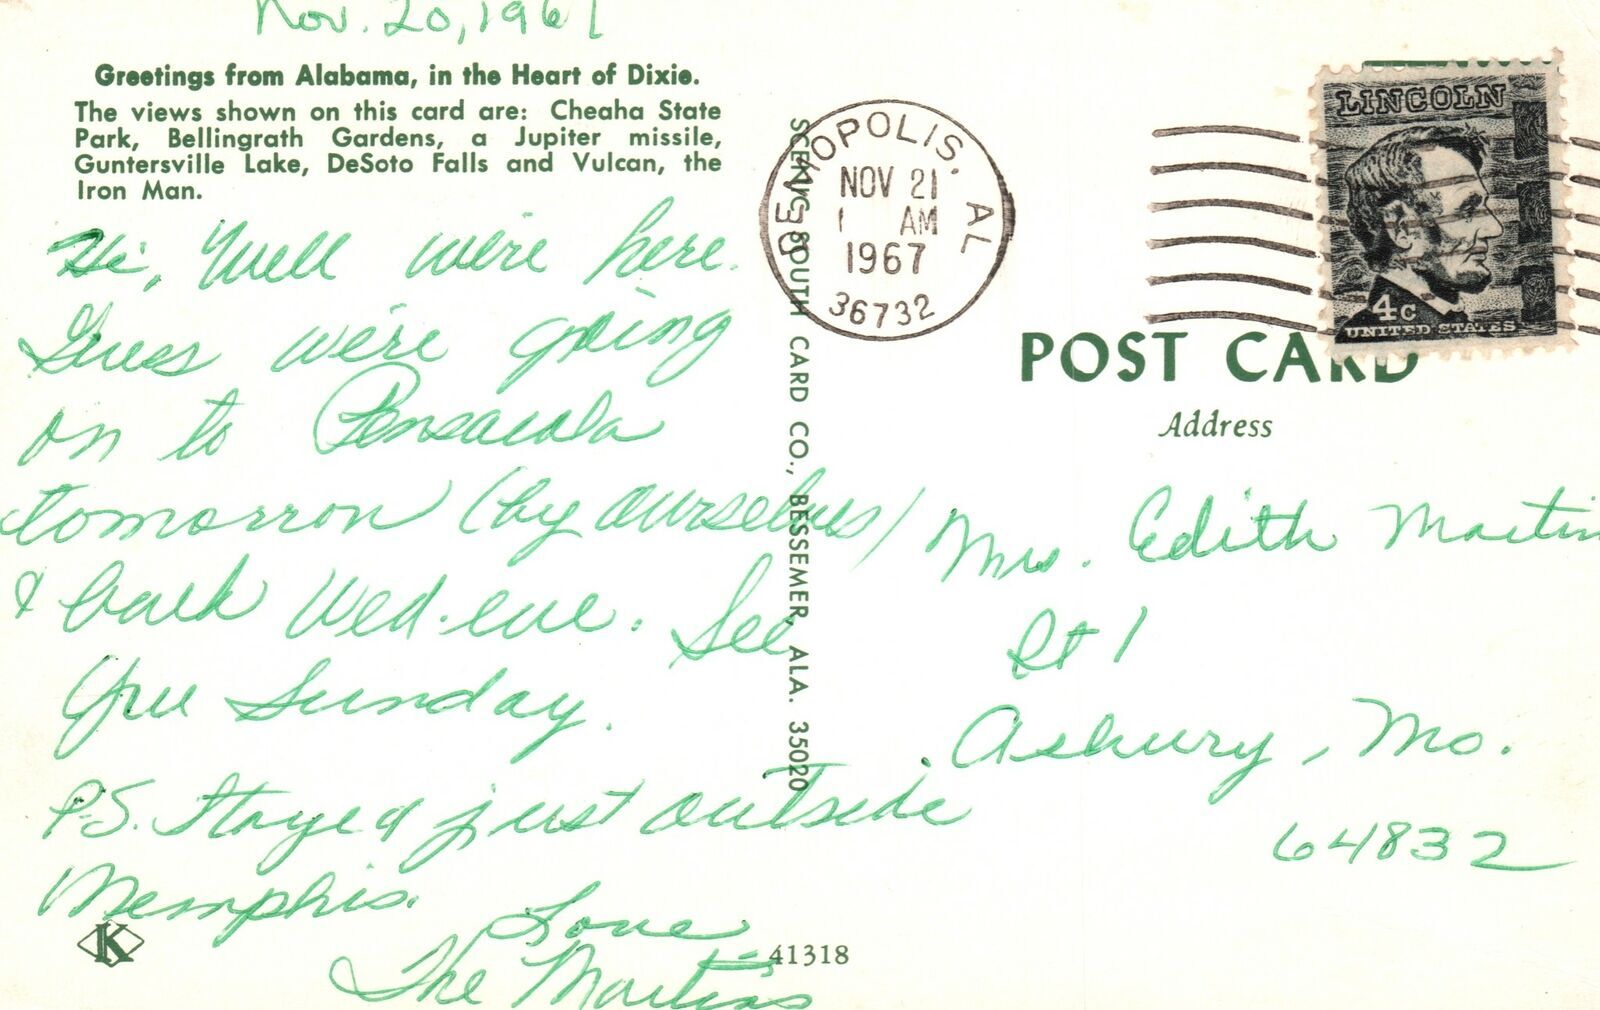 Nov. 20, 1967
Greetings from Alabama, in the Heart of Dixie.
The views shown on this card are: Cheaha State
Park, Bellingrath Gardens, a Jupiter missile,
Guntersville Lake, DeSoto Falls and Vulcan, the
Iron Man.
Hi, Well we're here.
Guess we're going
on to Pensacola
tomorrow (by ourselves)
& back Wed. eve. See
you Sunday.
P.S. Stayed just outside
Memphis.
Love
The Martins
K
41318
SCENIC SOUTH CARD CO., BESSEMER, ALA. 35020
DEMOPOLIS, AL
NOV 21
1 AM
1967
36732
LINCOLN
4c
UNITED STATES
POST CARD
Address
Mrs. Edith Martin
Rt 1
Asbury, Mo.
64832